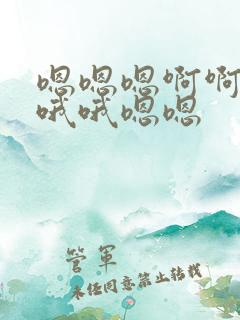 嗯嗯嗯啊啊
哦哦嗯嗯
管军
未经同意禁止转载